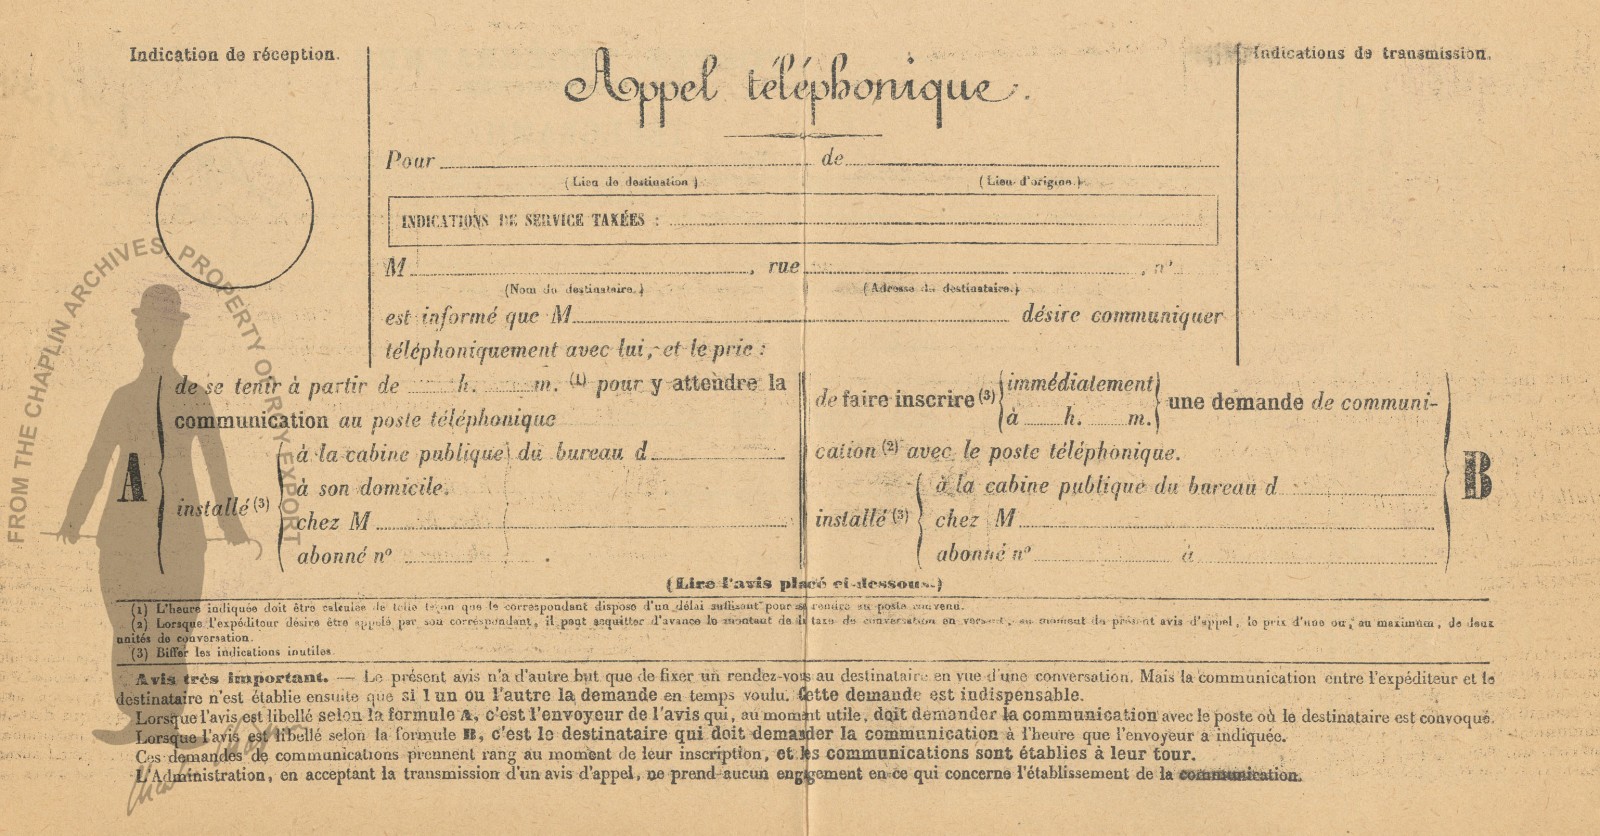 Indication de réception.
Appel téléphonique.
Indications de transmission.
Pour de
(Lieu de destination) (Lieu d'origine.)
INDICATIONS DE SERVICE TAXÉES :
M , rue , n°
(Nom du destinataire.) (Adresse du destinataire.)
est informé que M désire communiquer
téléphoniquement avec lui, et le prie :
A
de se tenir à partir de h. m. (1) pour y attendre la
communication au poste téléphonique
installé (3)
à la cabine publique du bureau d
à son domicile.
chez M
abonné n°
B
de faire inscrire (3) immédiatement
à h. m.
une demande de communi-
cation (2) avec le poste téléphonique.
installé (3)
à la cabine publique du bureau d
chez M
abonné n° à
(Lire l'avis placé ci-dessous.)
(1) L'heure indiquée doit être calculée de telle façon que le correspondant dispose d'un délai suffisant pour se rendre au poste convenu.
(2) Lorsque l'expéditeur désire être appelé par son correspondant, il peut acquitter d'avance le montant de la taxe de conversation en versant, au moment du présent avis d'appel, le prix d'une ou, au maximum, de deux
unités de conversation.
(3) Biffer les indications inutiles.
Avis très important. — Le présent avis n'a d'autre but que de fixer un rendez-vous au destinataire en vue d'une conversation. Mais la communication entre l'expéditeur et le
destinataire n'est établie ensuite que si l'un ou l'autre la demande en temps voulu. Cette demande est indispensable.
Lorsque l'avis est libellé selon la formule A, c'est l'envoyeur de l'avis qui, au moment utile, doit demander la communication avec le poste où le destinataire est convoqué.
Lorsque l'avis est libellé selon la formule B, c'est le destinataire qui doit demander la communication à l'heure que l'envoyeur a indiquée.
Ces demandes de communications prennent rang au moment de leur inscription, et les communications sont établies à leur tour.
L'Administration, en acceptant la transmission d'un avis d'appel, ne prend aucun engagement en ce qui concerne l'établissement de la communication.
FROM THE CHAPLIN ARCHIVES, PROPERTY OF ROY EXPORT